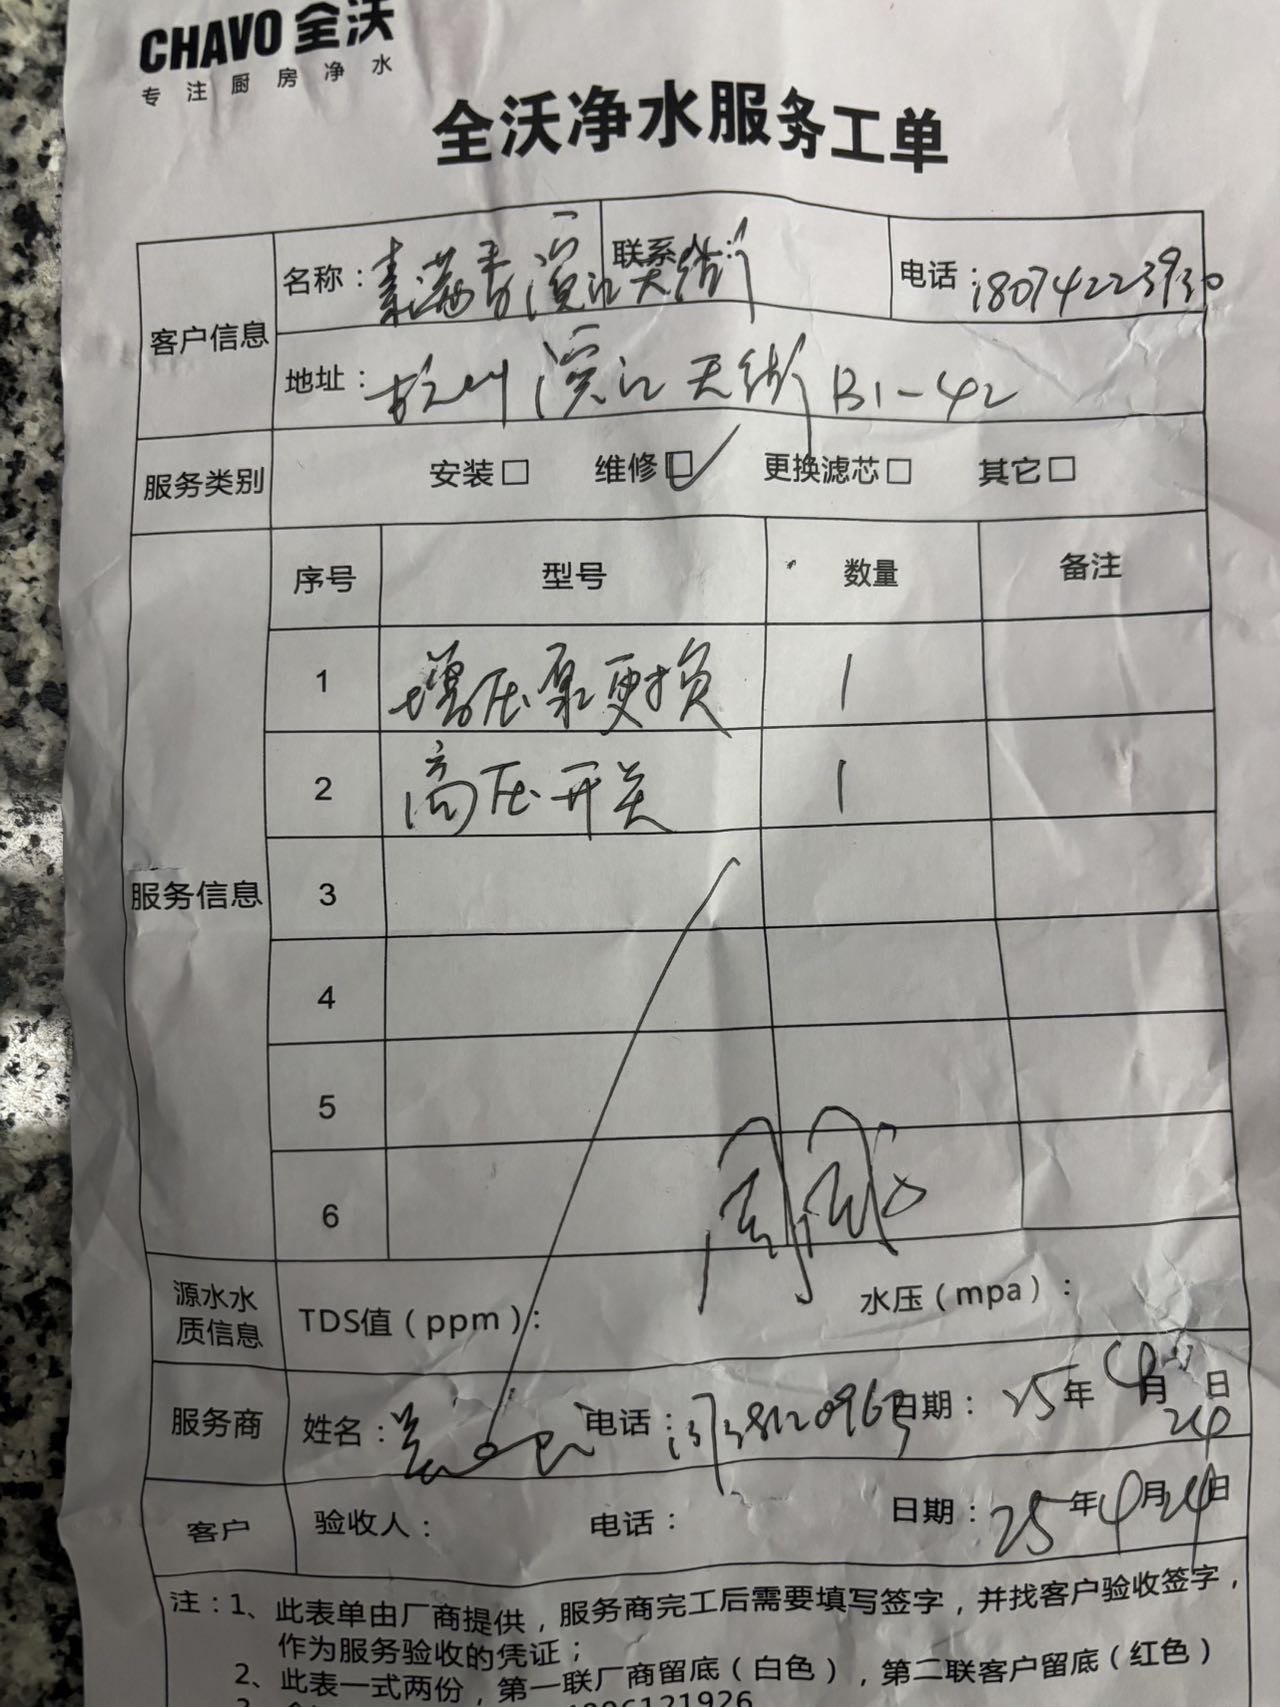 CHAVO 全沃
专注厨房净水
全沃净水服务工单
客户信息
名称：秦满香滨江天街 联系人： 电话：18074223930
地址：杭州滨江天街B1-42
服务类别 安装□ 维修□✓ 更换滤芯□ 其它□
服务信息
序号 型号 数量 备注
1 增压泵更换 1
2 高压开关 1
3
4
5
6
源水水质信息 TDS值（ppm）： 水压（mpa）：
服务商 姓名： 电话： 日期：25年4月24日
客户 验收人： 电话： 日期：25年4月24日
注：1、此表单由厂商提供，服务商完工后需要填写签字，并找客户验收签字，
作为服务验收的凭证；
2、此表一式两份，第一联厂商留底（白色），第二联客户留底（红色）